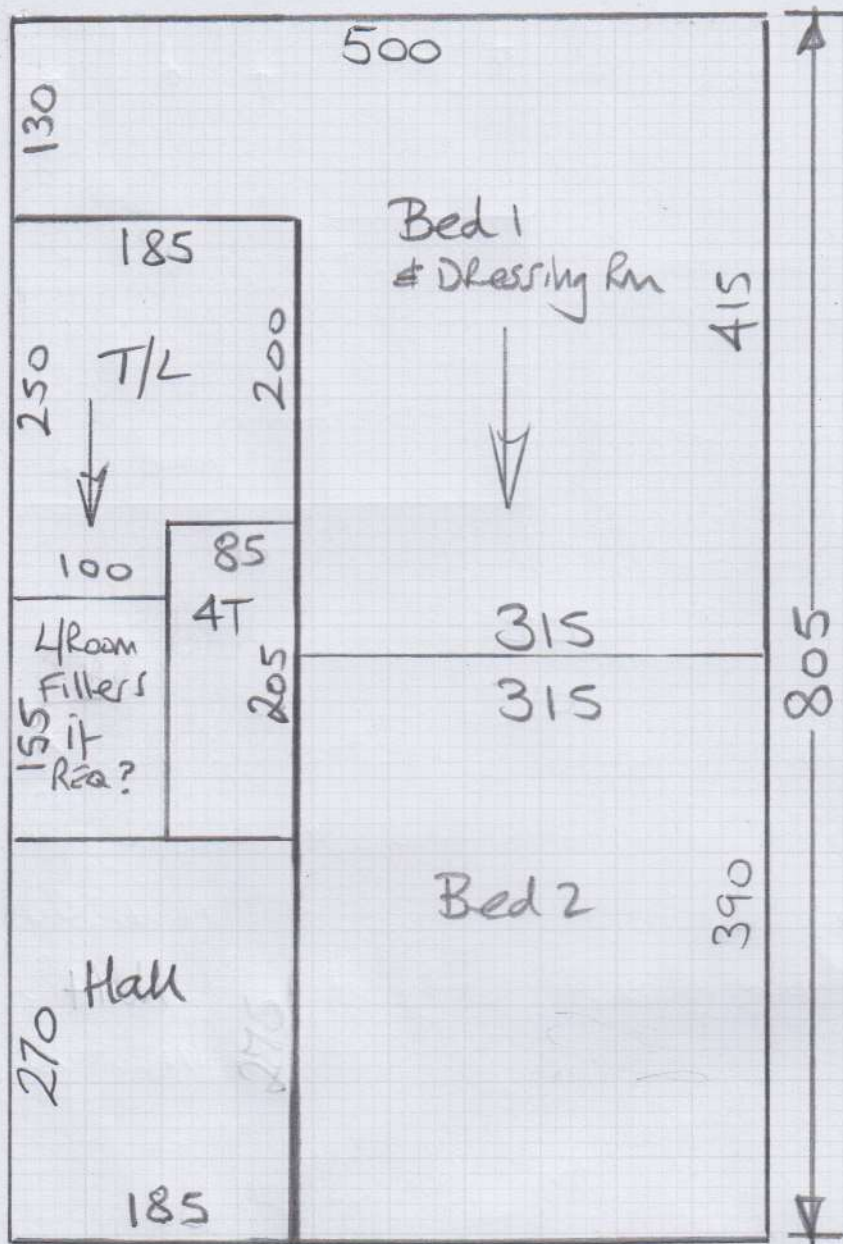 500
130
185
Bed 1
& Dressing Rm
415
T/L
200
250
100
85
4T
315
805
L/Room
Fillers
if
REQ?
155
205
315
Bed 2
390
Hall
270
275
185